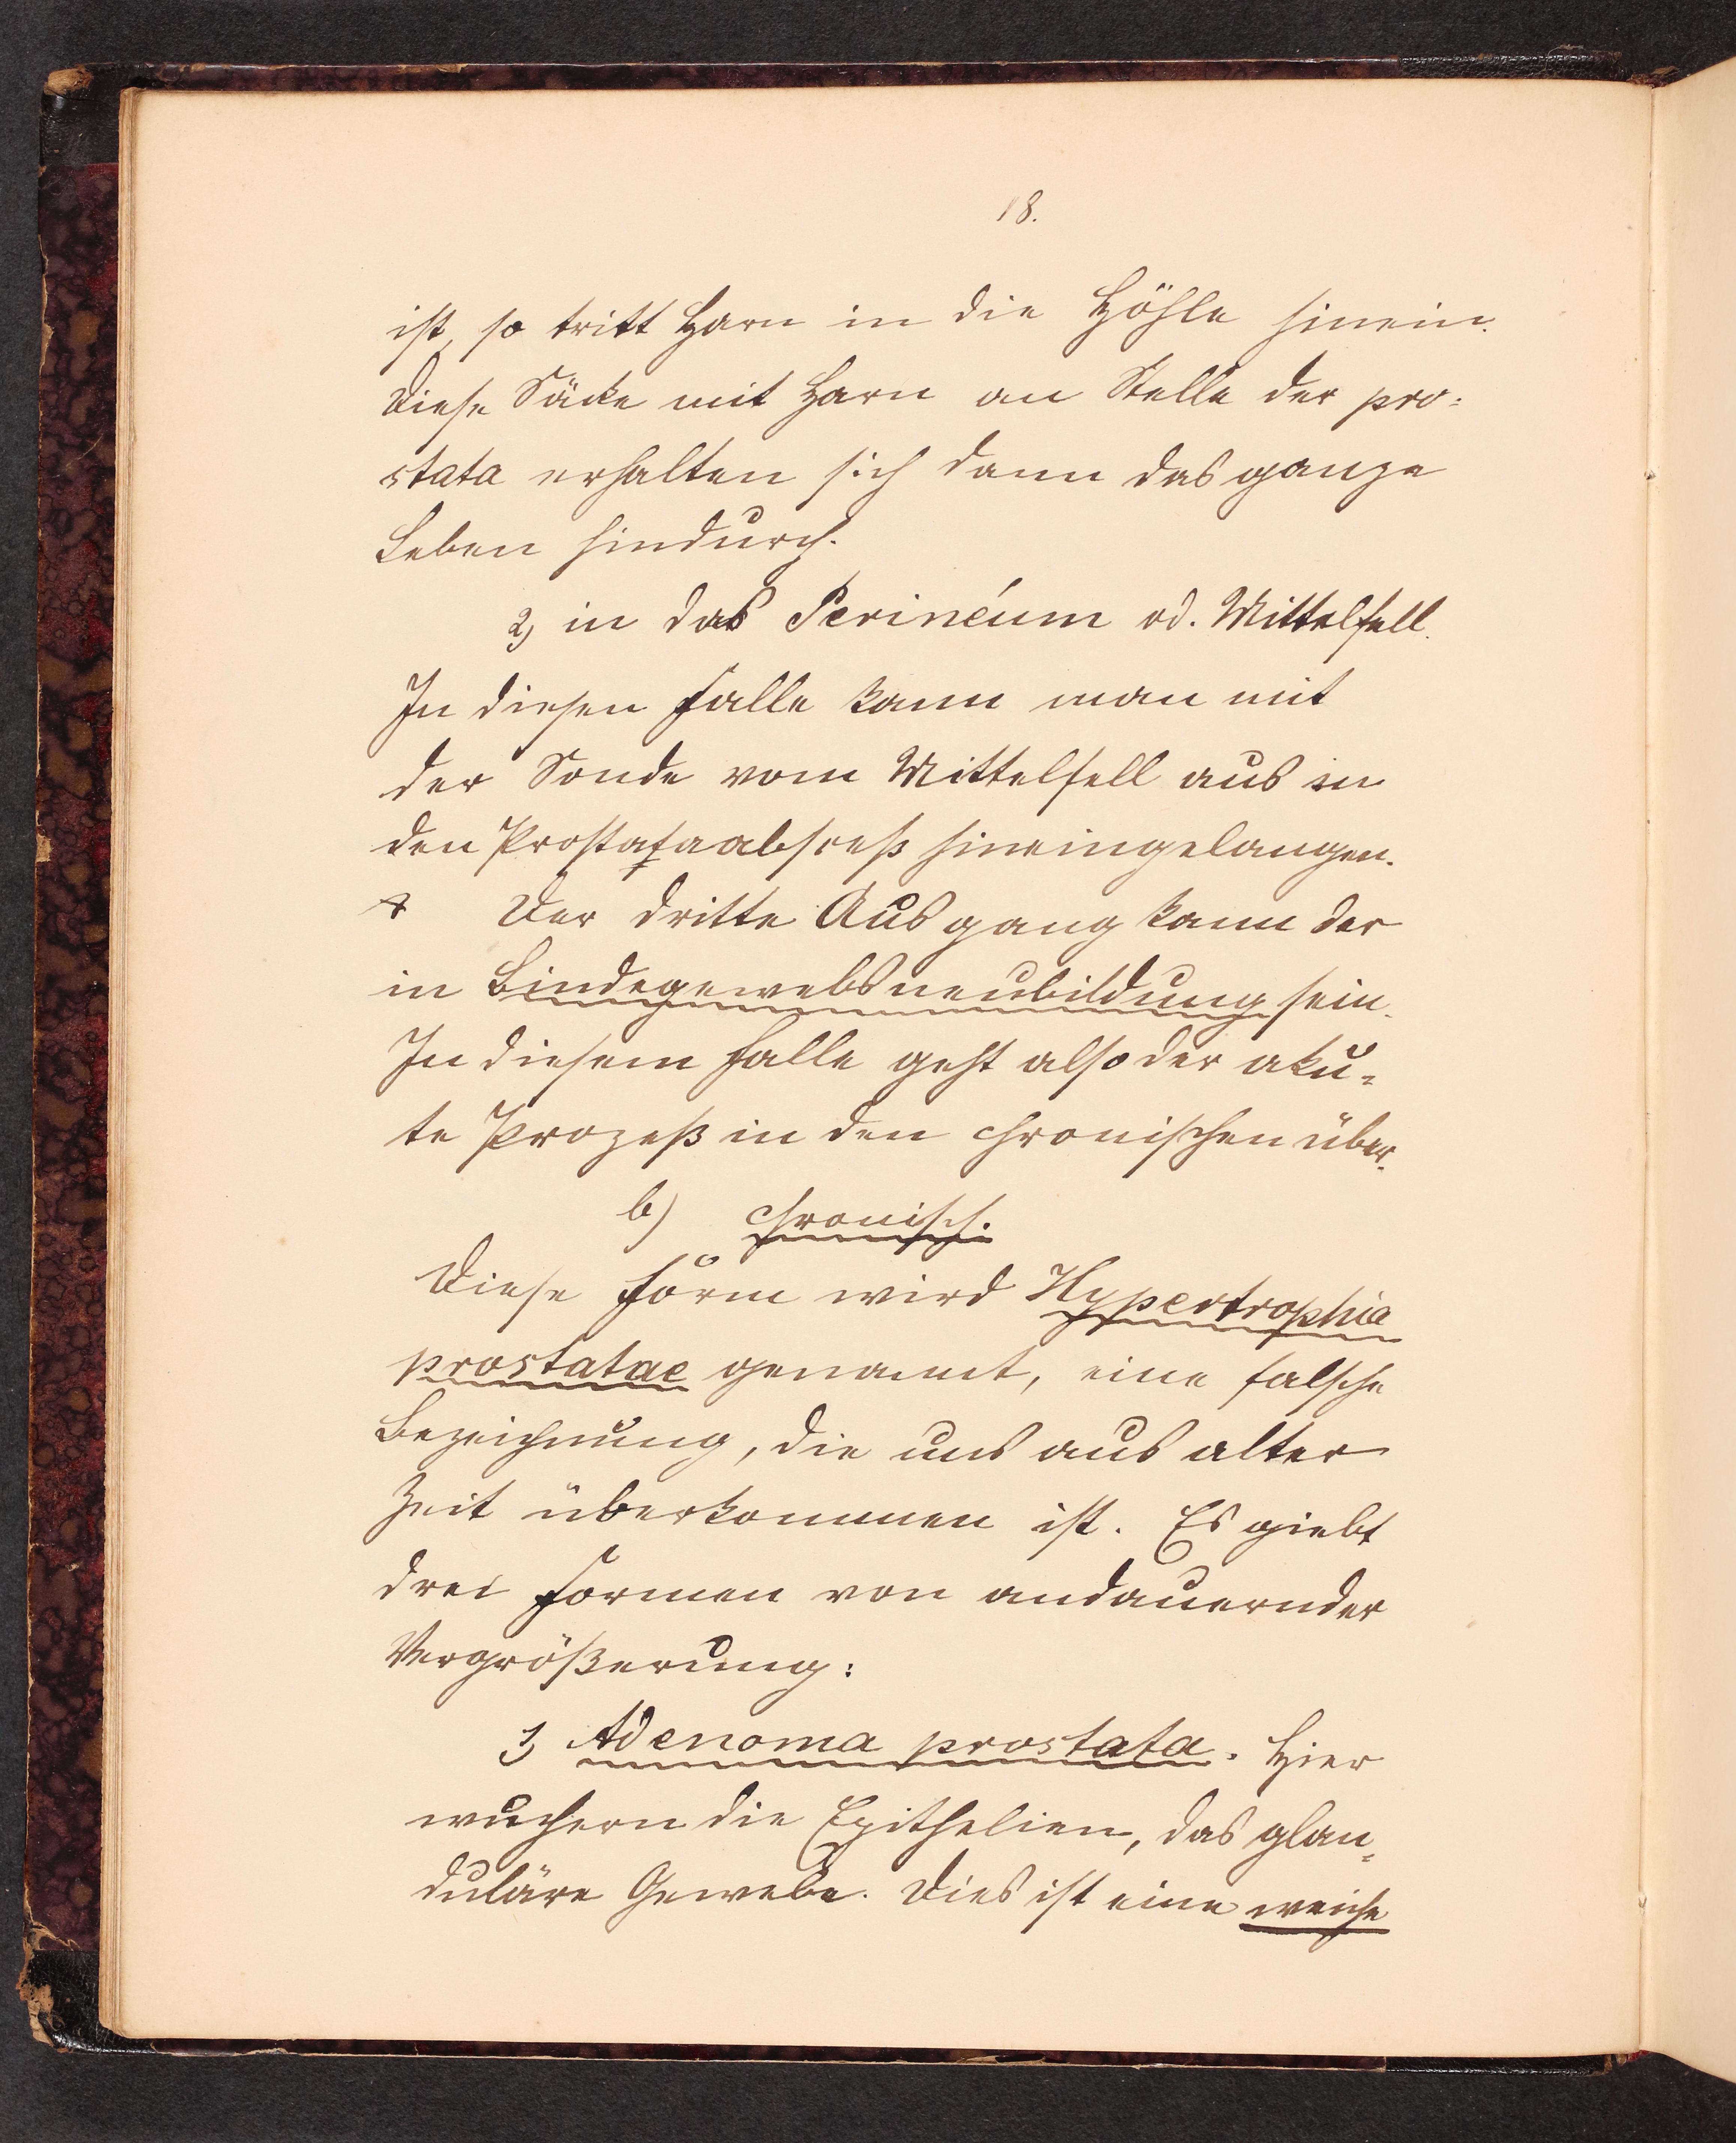 18.
ist, so tritt Harn in die Höhle hinein.
Diese Säcke mit Harn an Stelle der pro-
stata erhalten sich dann das ganze
Leben hindurch.
2, in das Perineum od. Mittelfell.
In diesen Falle kann man mit
der Sonde vom Mittelfell aus in
den Prostataabsceß hineingelangen.
Der dritte Ausgang kann der
in Bindegewebsneubildung sein.
In diesem Falle geht also der aku-
te Prozeß in den chronischen über.
b) chronisch.
Diese Form wird Hypertrophia
prostatae genannt, eine falsche
Bezeichnung, die uns aus alter
Zeit überkommen ist. Es giebt
drei Formen von andauernder
Vergrößerung:
1, Adenoma prostata. Hier
wuchern die Epithelien, das glan-
duläre Gewebe. Dies ist eine weiche